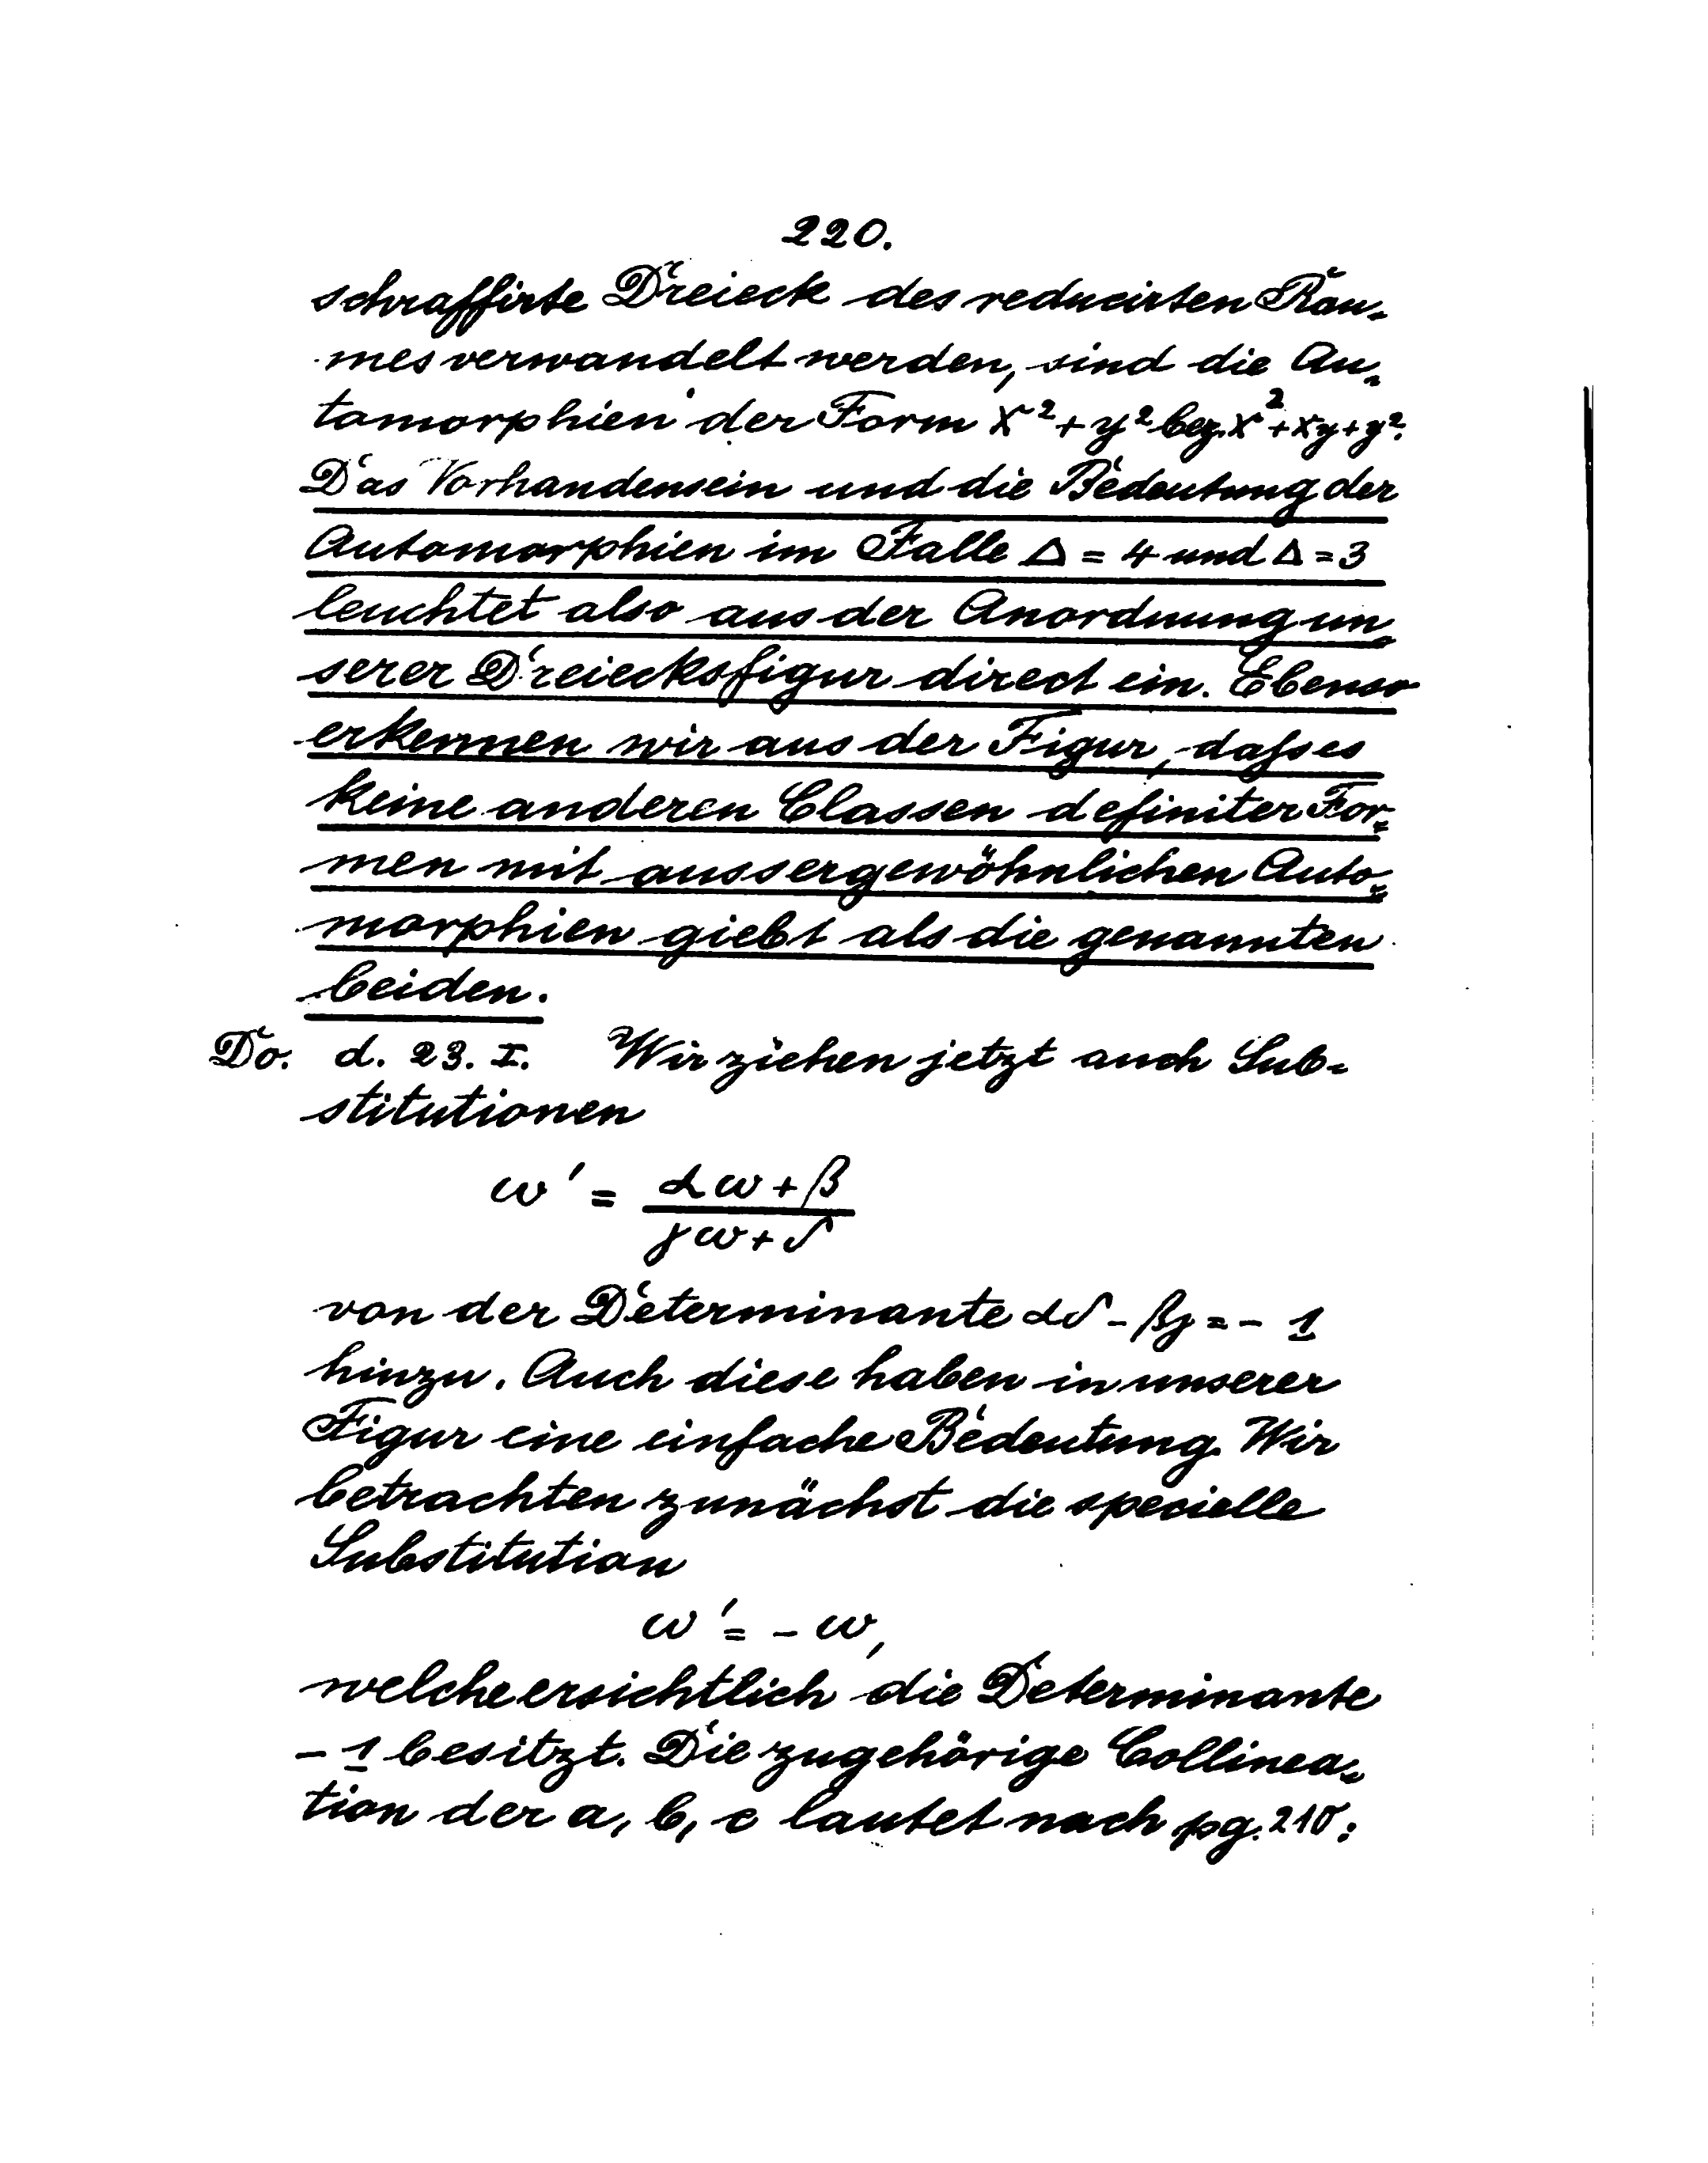 220.
schraffirte Dreieck des reducirten Rau-
mes verwandelt werden, sind die Au-
tomorphien der Form x² + y² bez. x² + xy + y².
Das Vorhandensein und die Bedeutung der
Automorphien im Falle Δ = 4 und Δ = 3
leuchtet also aus der Anordnung un-
serer Dreiecksfigur direct ein. Ebenso
erkennen wir aus der Figur, dass es
keine anderen Classen definiter For-
men mit aussergewöhnlichen Auto-
morphien giebt als die genannten
beiden.
Do. d. 23. I. Wir ziehen jetzt auch Sub-
stitutionen
ω' = (αω + β)/(γω + δ)
von der Determinante αδ - βγ = - 1
hinzu. Auch diese haben in unserer
Figur eine einfache Bedeutung. Wir
betrachten zunächst die specielle
Substitution
ω' = - ω,
welche ersichtlich die Determinante
- 1 besitzt. Die zugehörige Collinea-
tion der a, b, c lautet nach pg. 210: